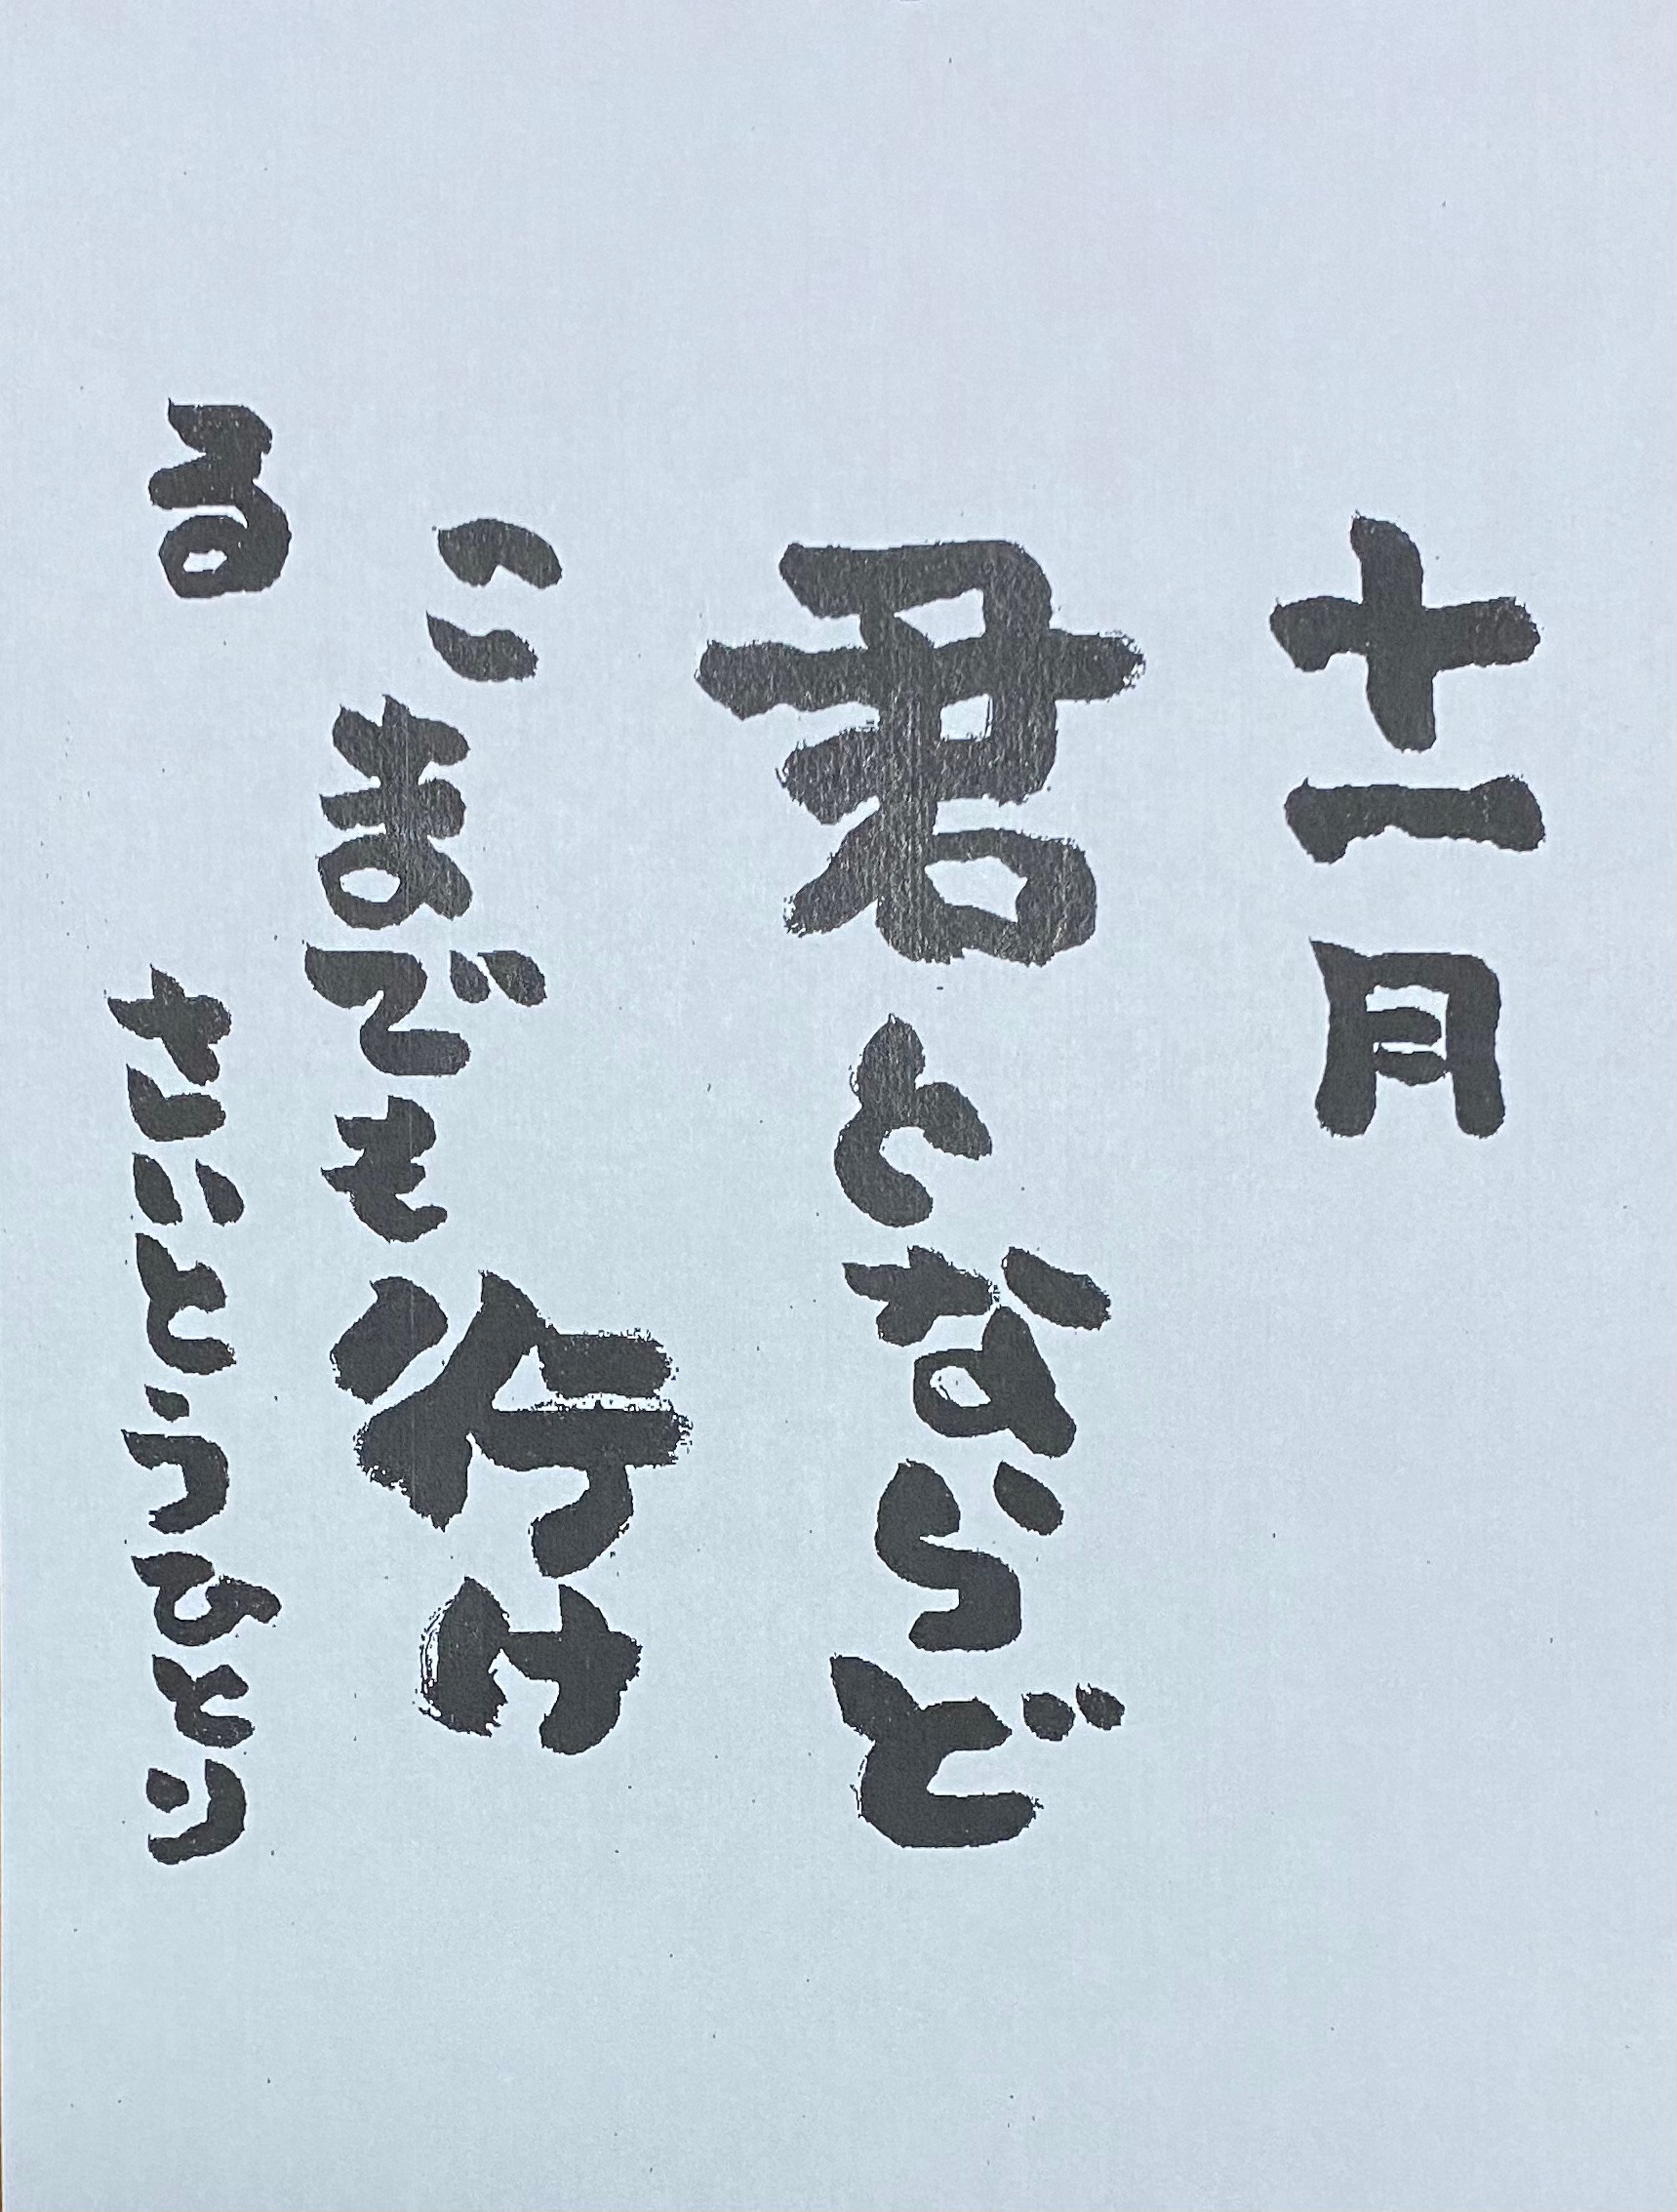 十一月
君とならど
こまでも行け
る
さいとうひとり